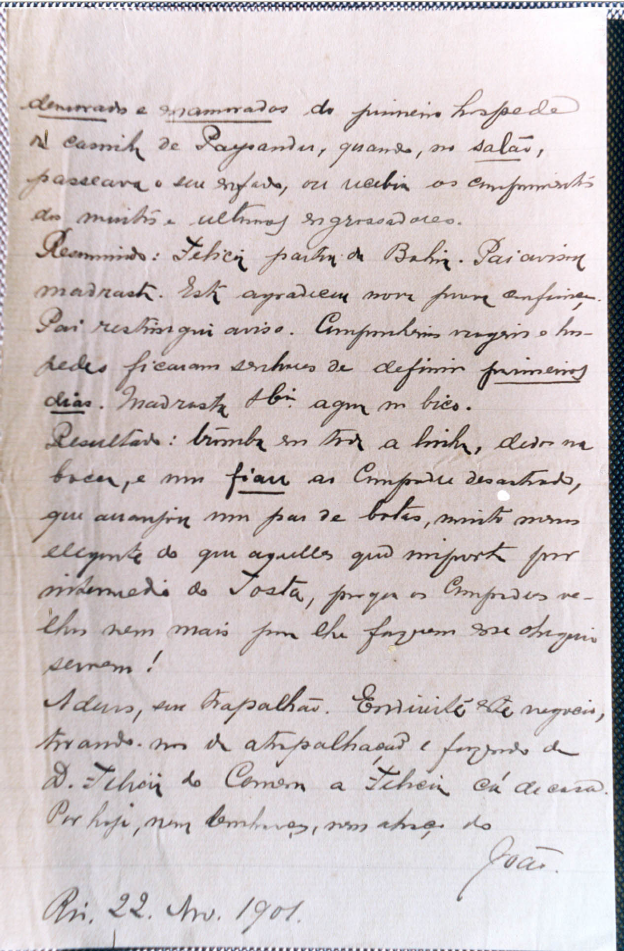 demorado e enamorados do primeiro hospede
casinha de Paysandu, quando, no salão,
passeava o seu enfado, ou recebia os cumprimentos
dos muitos e ultimos engrossadores.
Resumindo: Felicia partiu da Bahia. Pai avisou
madrasta. Esta agradeceu nova prova confiança.
Pai restringiu aviso. Companheiros viagem e hos-
pedes ficaram senhores de definir primeiros
dias. Madrasta agua no bico.
Resultado: bomba em toda a linha, dedo na
bocca, e um fiau ao Compadre desastrado,
que arranjou um par de botas, muito menos
elegante do que aquelles que importa por
intermedio do Tosta, porque os Compadres ve-
lhos nem mais para lhe fazerem esse obsequio
servem!
Adeus, seu trapalhão. Endireite este negocio,
tirando-nos da atrapalhação e fazendo da
D. Felicia do Comem a Felicia cá de casa.
Por hoje, nem lembranças, nem abraço do
João.
Rio. 22. Nov. 1901.